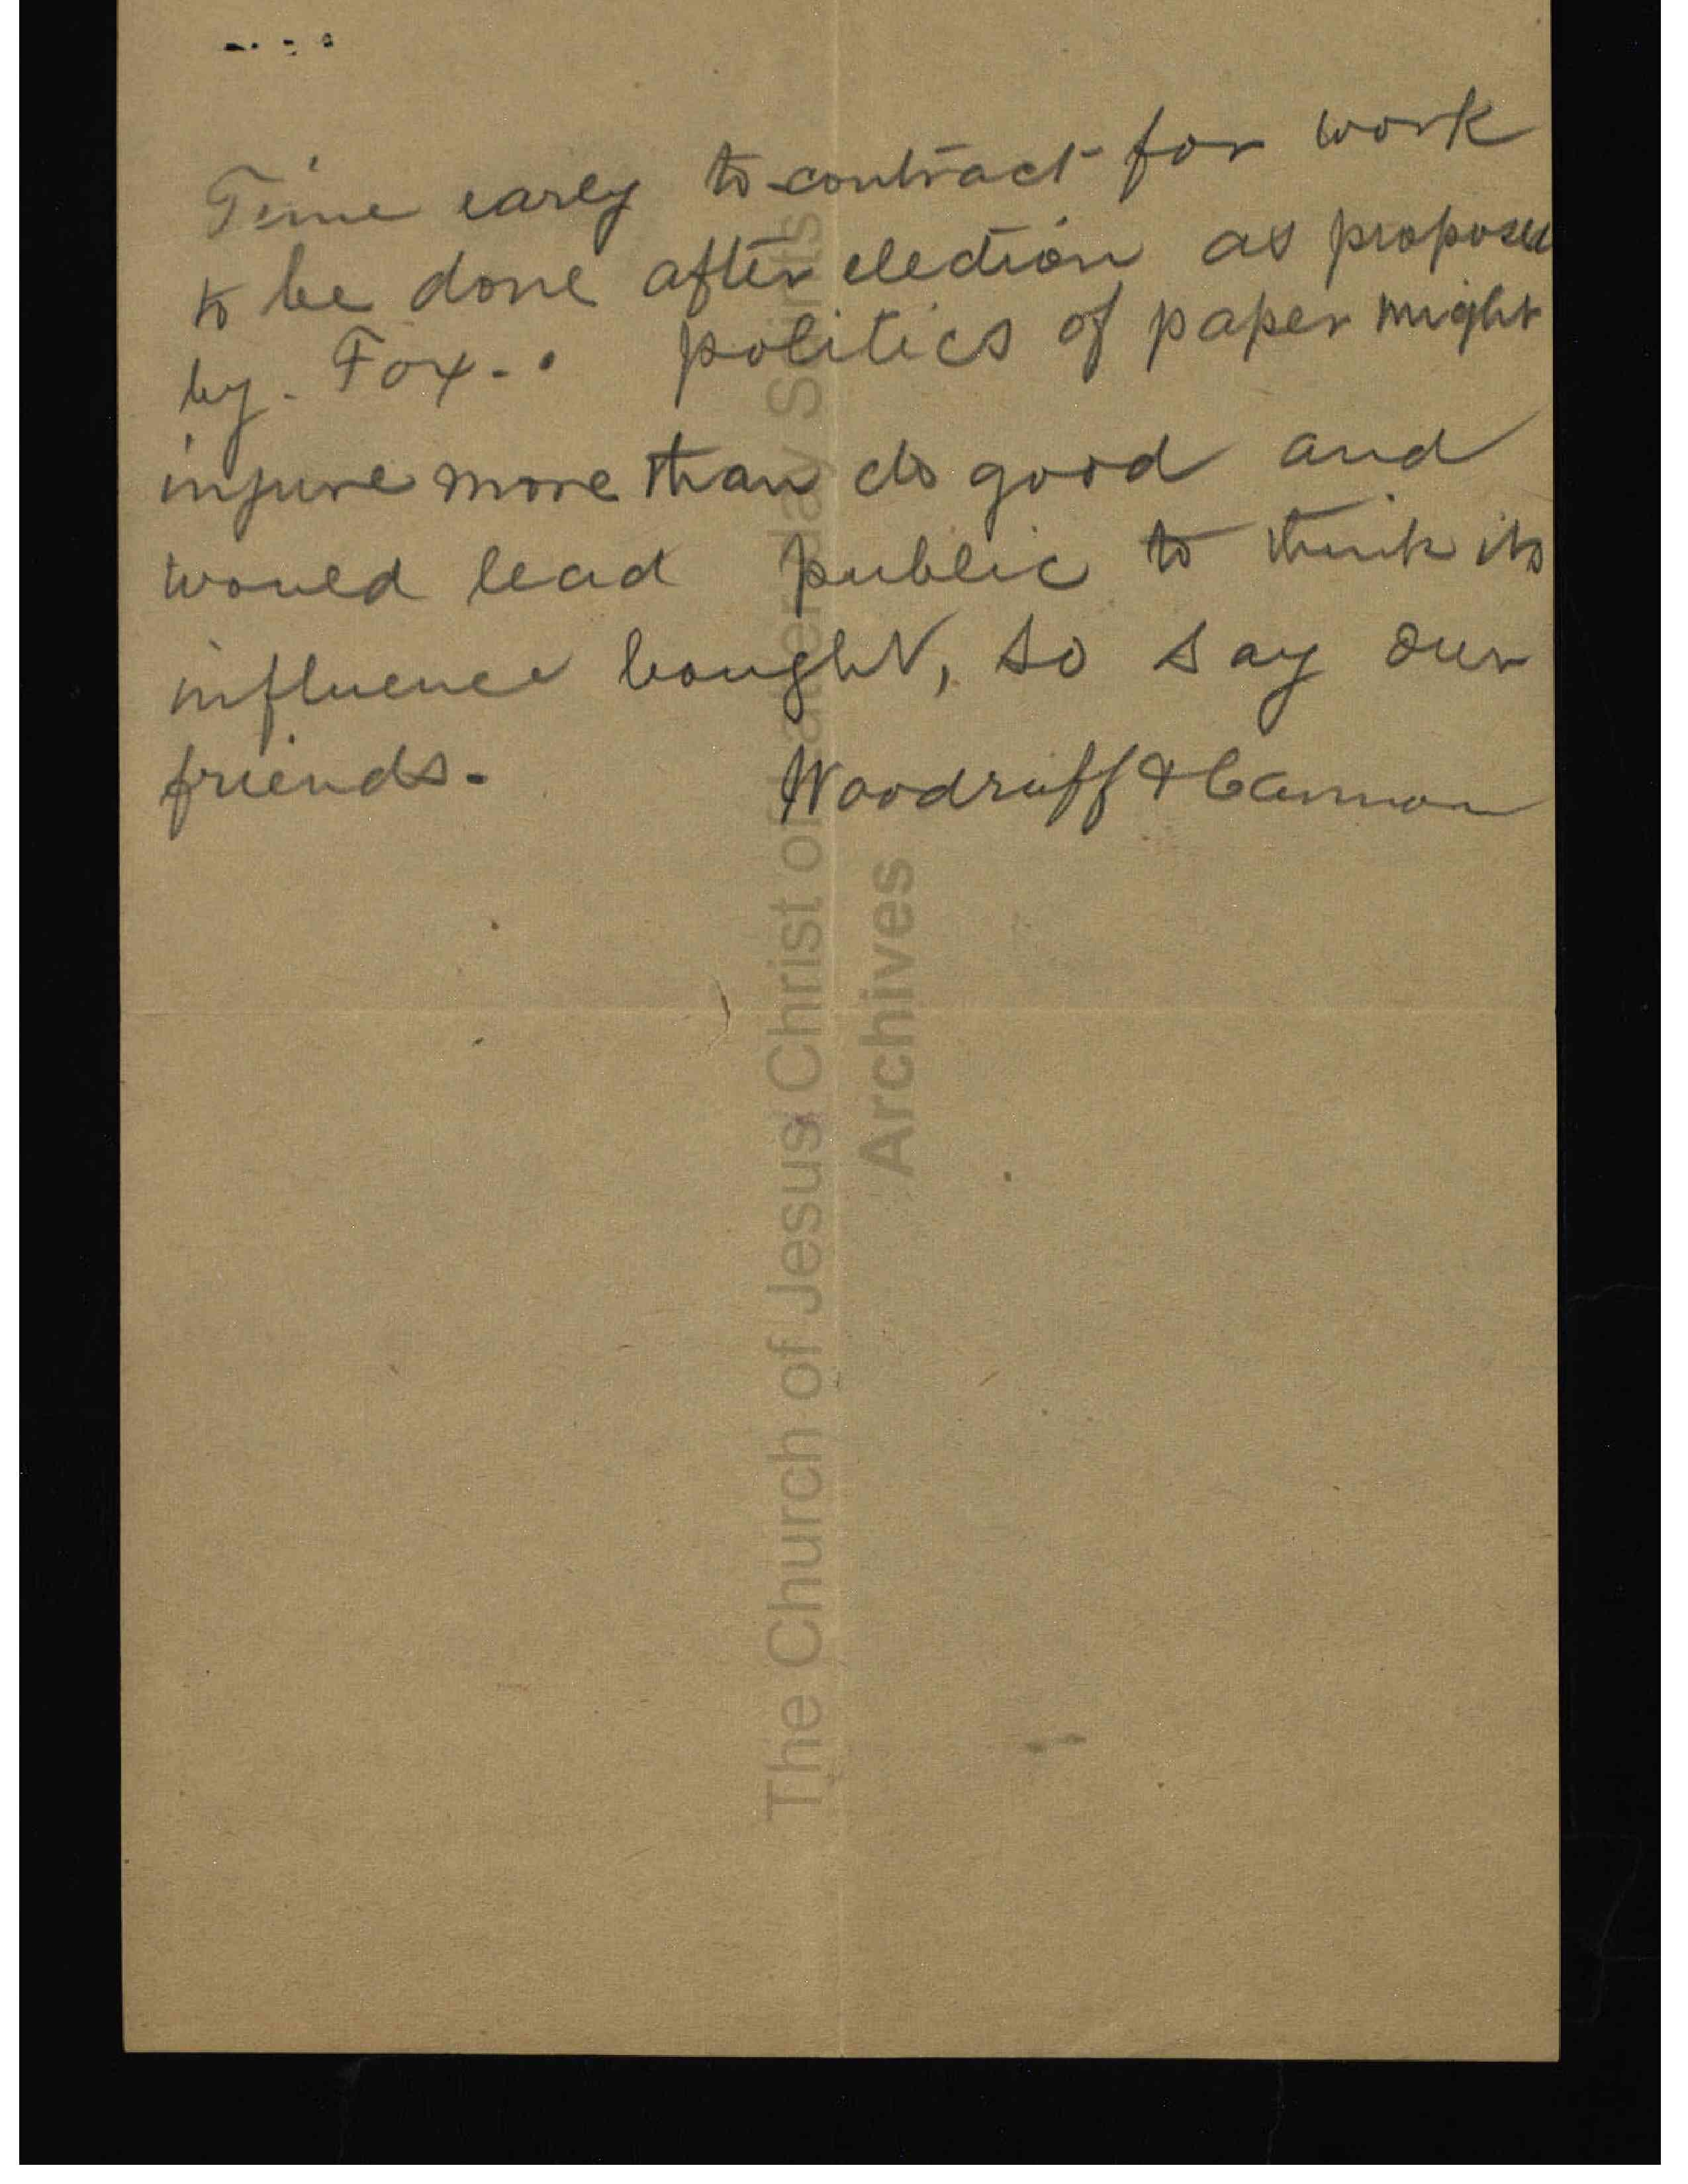 Time early to contract for work
to be done after election as proposed
by. Fox.. politics of paper might
injure more than do good and
would lead public to think its
influence bought, so say our
friends. Woodruff & Cannon
The Church of Jesus Christ of Latter-day Saints
Archives